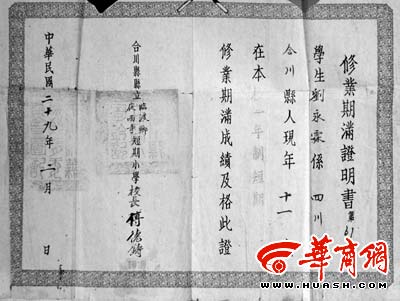 修業期滿證明書第61
學生劉永霖係四川
合川縣人現年十一
在本 一年制短期
修業期滿成績及格此證
合川縣縣立
臨渡鄉
短期小學校長傅德
中華民國二十九年二月 日
華商網
WWW.HUASH.COM